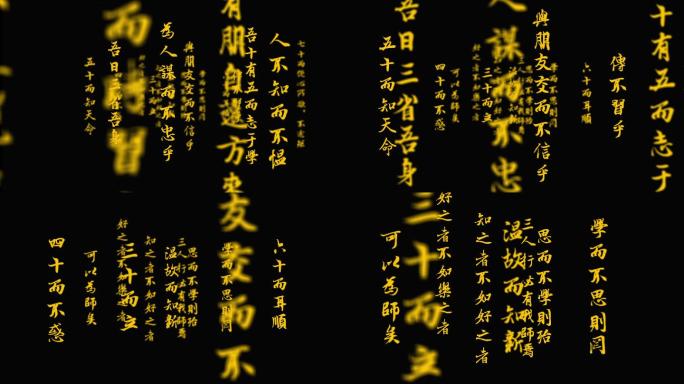 人不知而不慍
吾十有五而志于學
有朋自遠方來
與朋友交而不信乎
為人謀而不忠乎
三十而立
而時習
吾日三省吾身
五十而知天命
十有五而志于
傳不習乎
六十而耳順
與朋友交而不信乎
人謀而不忠
三十而立
可以為師矣
四十而不惑
吾日三省吾身
五十而知天命
六十而耳順
學而不思則罔
友交而不
思而不學則殆
三人行必有我師焉
溫故而知新
知之者不如好之者
三十而立
好之者不如樂之者
可以為師矣
四十而不惑
學而不思則罔
思而不學則殆
三人行必有我師焉
溫故而知新
知之者不如好之者
好之者不如樂之者
三十而立
可以為師矣